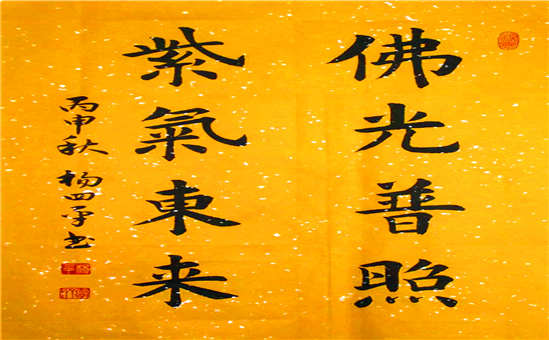 佛光普照
紫氣東来
丙申秋 杨四平书